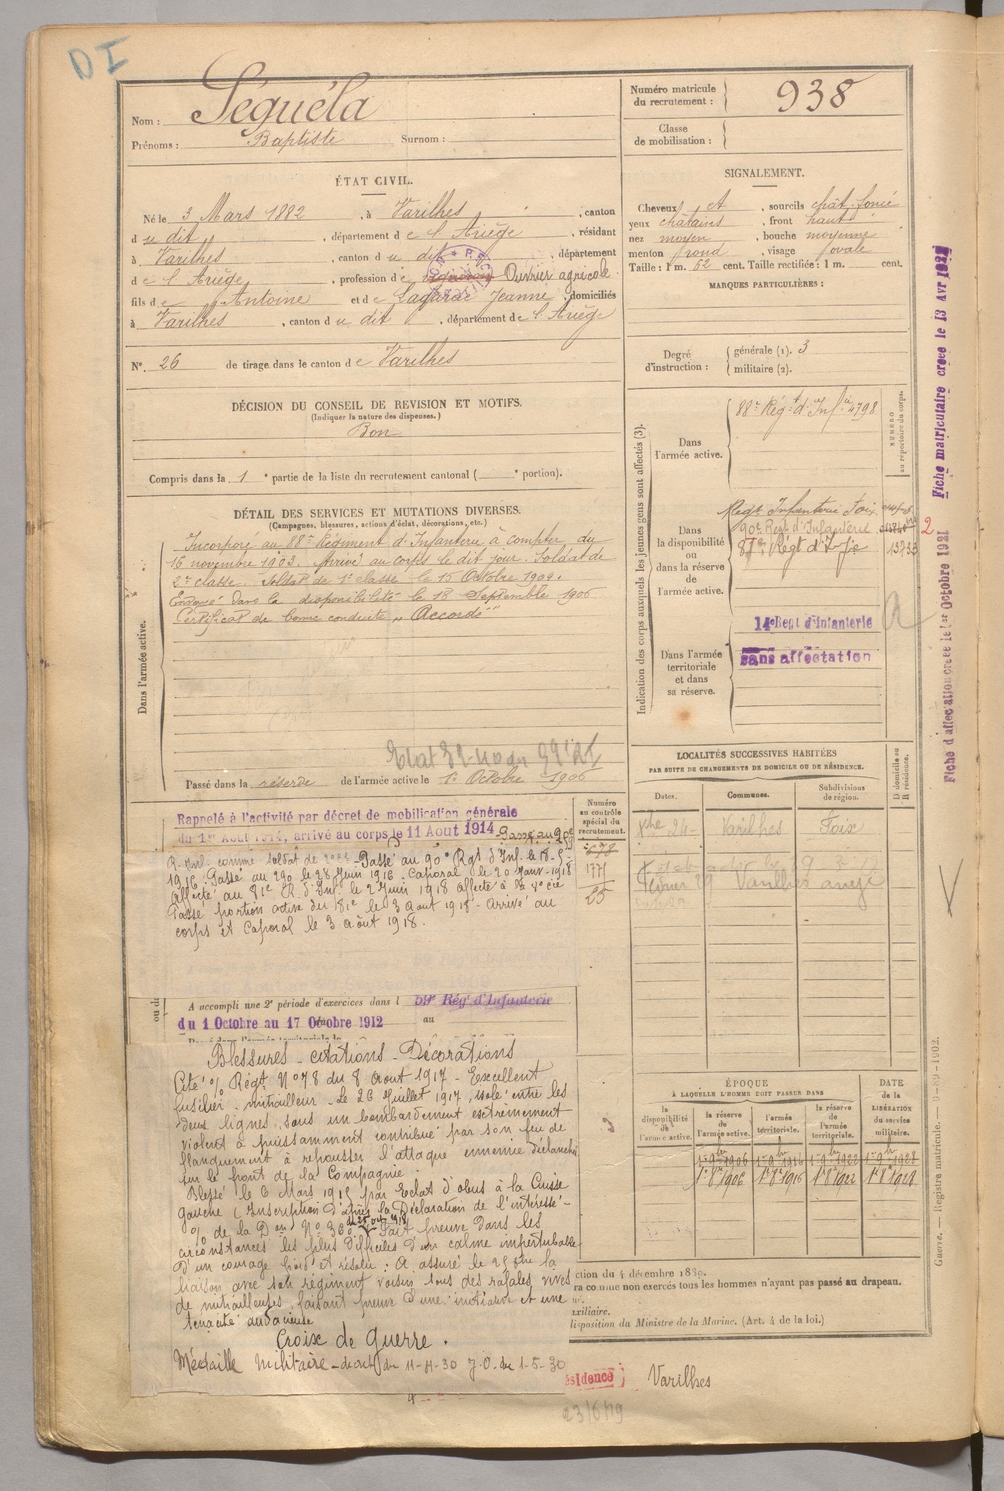 DI
Nom : Séguéla
Prénoms : Baptiste Surnom :
Numéro matricule du recrutement : 938
Classe de mobilisation :
ÉTAT CIVIL.
Né le 3 Mars 1882, à Varilhes, canton
du dit, département de l'Ariège, résidant
à Varilhes, canton du dit, département
de l'Ariège, profession de Ouvrier agricole
fils de Antoine et de Lagarde Jeanne, domiciliés
à Varilhes, canton du dit, département de l'Ariège
N° 26 de tirage dans le canton de Varilhes
SIGNALEMENT.
Cheveux et, sourcils chât. foncé
yeux châtains, front haut
nez moyen, bouche moyenne
menton rond, visage ovale
Taille : 1 m. 62 cent. Taille rectifiée : 1 m. cent.
MARQUES PARTICULIÈRES :
Degré d'instruction : générale (1). 3
militaire (2).
DÉCISION DU CONSEIL DE REVISION ET MOTIFS.
(Indiquer la nature des dispenses.)
Bon
Compris dans la 1e partie de la liste du recrutement cantonal ( e portion).
DÉTAIL DES SERVICES ET MUTATIONS DIVERSES.
(Campagnes, blessures, actions d'éclat, décorations, etc.)
Dans l'armée active.
Incorporé au 88e Régiment d'Infanterie à compter du
16 novembre 1903. Arrivé au corps le dit jour. Soldat de
2e classe. Soldat de 1e classe le 15 Octobre 1904.
Envoyé dans la disponibilité le 18 Septembre 1906
Certificat de bonne conduite "Accordé"
Passé dans la réserve de l'armée active le 1er Octobre 1906
Indication des corps auxquels les jeunes gens sont affectés (3).
NUMÉRO au répertoire du corps.
Dans l'armée active.
88e Régt d'Infie 4798
Dans la disponibilité ou dans la réserve de l'armée active.
Régt Infanterie Foix
90e Régt d'Infanterie
81e Régt d'Infie
2
14e Regt d'Infanterie
Dans l'armée territoriale et dans sa réserve.
sans affectation
Fiche matriculaire créée le 13 Avr 1921
Fiche d'affectation créée le 1er Octobre 1921
LOCALITÉS SUCCESSIVES HABITÉES
PAR SUITE DE CHANGEMENTS DE DOMICILE OU DE RÉSIDENCE.
Dates. Communes. Subdivisions de région. D domicile ou R résidence.
24 Varilhes Foix
29 Varilhes ariège
Rappelé à l'activité par décret de mobilisation générale
du 1er Août 1914, arrivé au corps le 11 Aout 1914 - Passé au 90e
R. Inf. comme soldat de Passé au 90e Rgt d'Inf. le 18-5-
1916. Passé au 290 le 28 Juin 1916. Caporal le 20 Janv. 1918
Affecté au 81e R. d'Inf. le 2 Juin 1918
Passé portion active du 81e le 3 aout 1918 - Arrivé au
corps et Caporal le 3 août 1918.
Numéro au contrôle spécial du recrutement.
678
1771
25
A accompli une 2e période d'exercices dans l 59e Régt d'Infanterie
du 1 Octobre au 17 Octobre 1912 au
Blessures - citations - Décorations
Cité % Régt N° 78 du 8 Aout 1917 - Excellent
fusilier - mitrailleur - Le 26 Juillet 1917, isolé entre les
deux lignes, sous un bombardement extrêmement
violent a puissamment contribué par son feu de
flanquement à repousser l'attaque ennemie déclanchée
sur le front de la Compagnie.
Blessé le 6 Mars 1915 par Eclat d'obus à la Cuisse
gauche (Inscription d'après la Déclaration de l'intéressé -
% de la Don N° 360 du 25 oct. 1918 Fait preuve dans les
circonstances les plus difficiles d'un calme imperturbable
d'un courage froid et résolu : A assuré le la
liaison avec son régiment voisin sous des rafales vives
de mitrailleuses, faisant preuve d'une initiative et une
tenacité audacieuse
Croix de Guerre.
Médaille Militaire - décret du 11-4-30 J.O. du 1-5-30
ÉPOQUE
À LAQUELLE L'HOMME DOIT PASSER DANS
la disponibilité de l'armée active. la réserve de l'armée active. l'armée territoriale. la réserve de l'armée territoriale.
DATE de la LIBÉRATION du service militaire.
1er 9bre 1906 1er 9bre 1916 1er 9bre 1922 1er 9bre 1928
1er 8bre 1906 1er 8bre 1916 1er 8bre 1922 1er 8bre 1928
ction du 4 décembre 1889.
ra comme non exercés tous les hommes n'ayant pas passé au drapeau.
xiliaire.
lisposition du Ministre de la Marine. (Art. 4 de la loi.)
Guerre. — Registre matricule. — 9-89-1902.
ésidence Varilhes
23/6/19